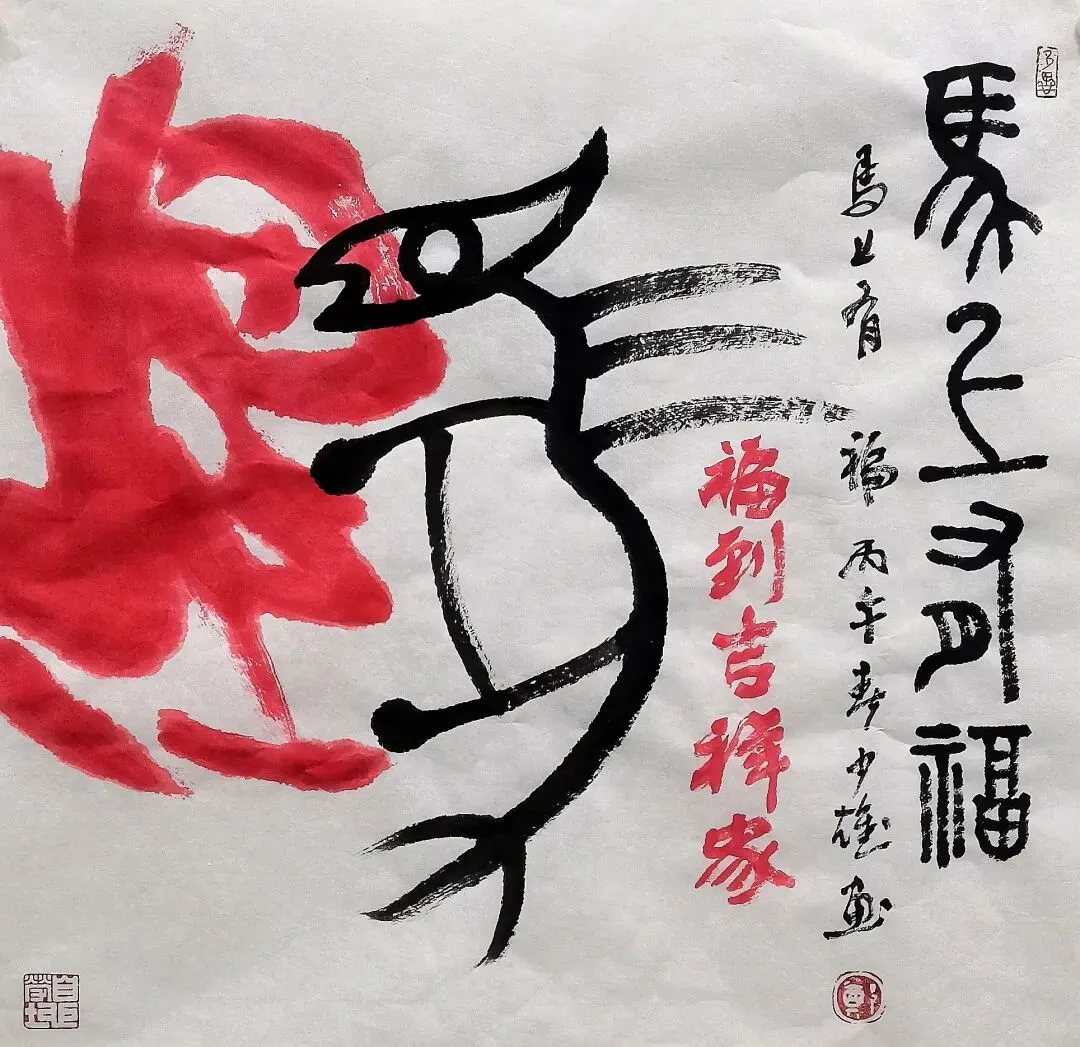 馬上有福
馬上有福 丙午春少雄画
福到吉祥家
馬